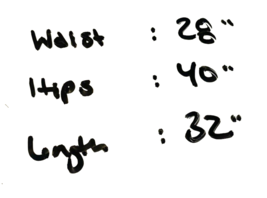 Waist : 28"
Hips : 40"
Length : 32"